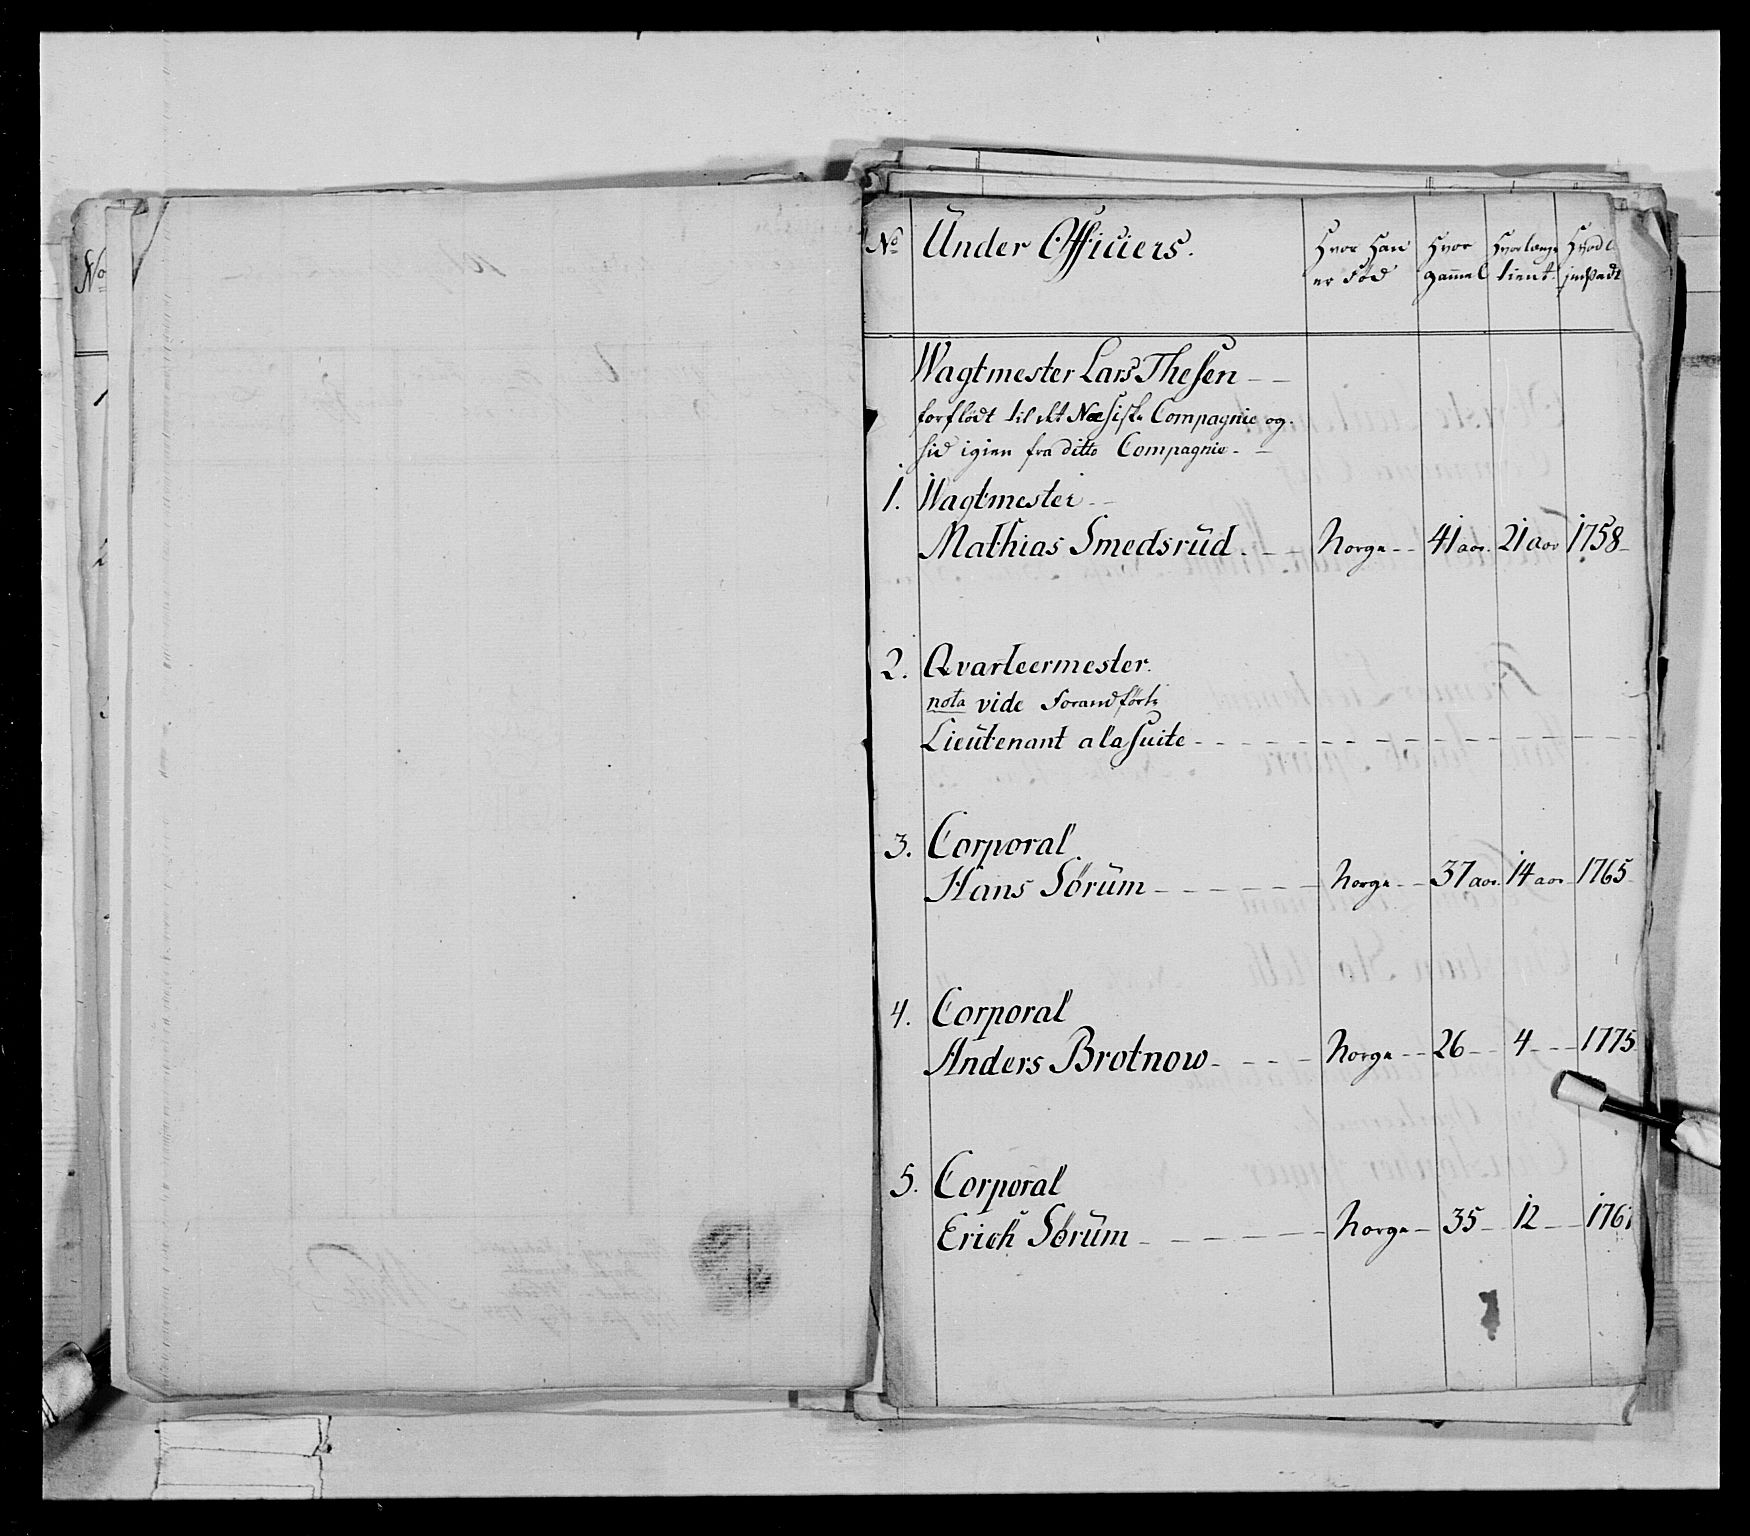 No
No Under Officiers. Hvor Han er Född Hvor gammel Hvor længe tient
Wagtmester Lars Thesen - -
forflödt til det Næsiske Compagnie og
hid igien fra ditto Compagnie - -
1. Wagtmester - -
Mathias Smedsrud. - - Norge - - 41 aar. 21 aar 1758 -
2. Qvarteermester.
nota vide Forandförte
Lieutenant a la Suite - - - - - -
3. Corporal
Hans Sörum - - - - - Norge - - 37 aar. 14 aar 1765
4. Corporal
Anders Brotnow - - - - Norge - - 26 - - 4 - - - 1775
5. Corporal
Erich Sörum - - - - - - Norge - 35 - - 12 - - 1767